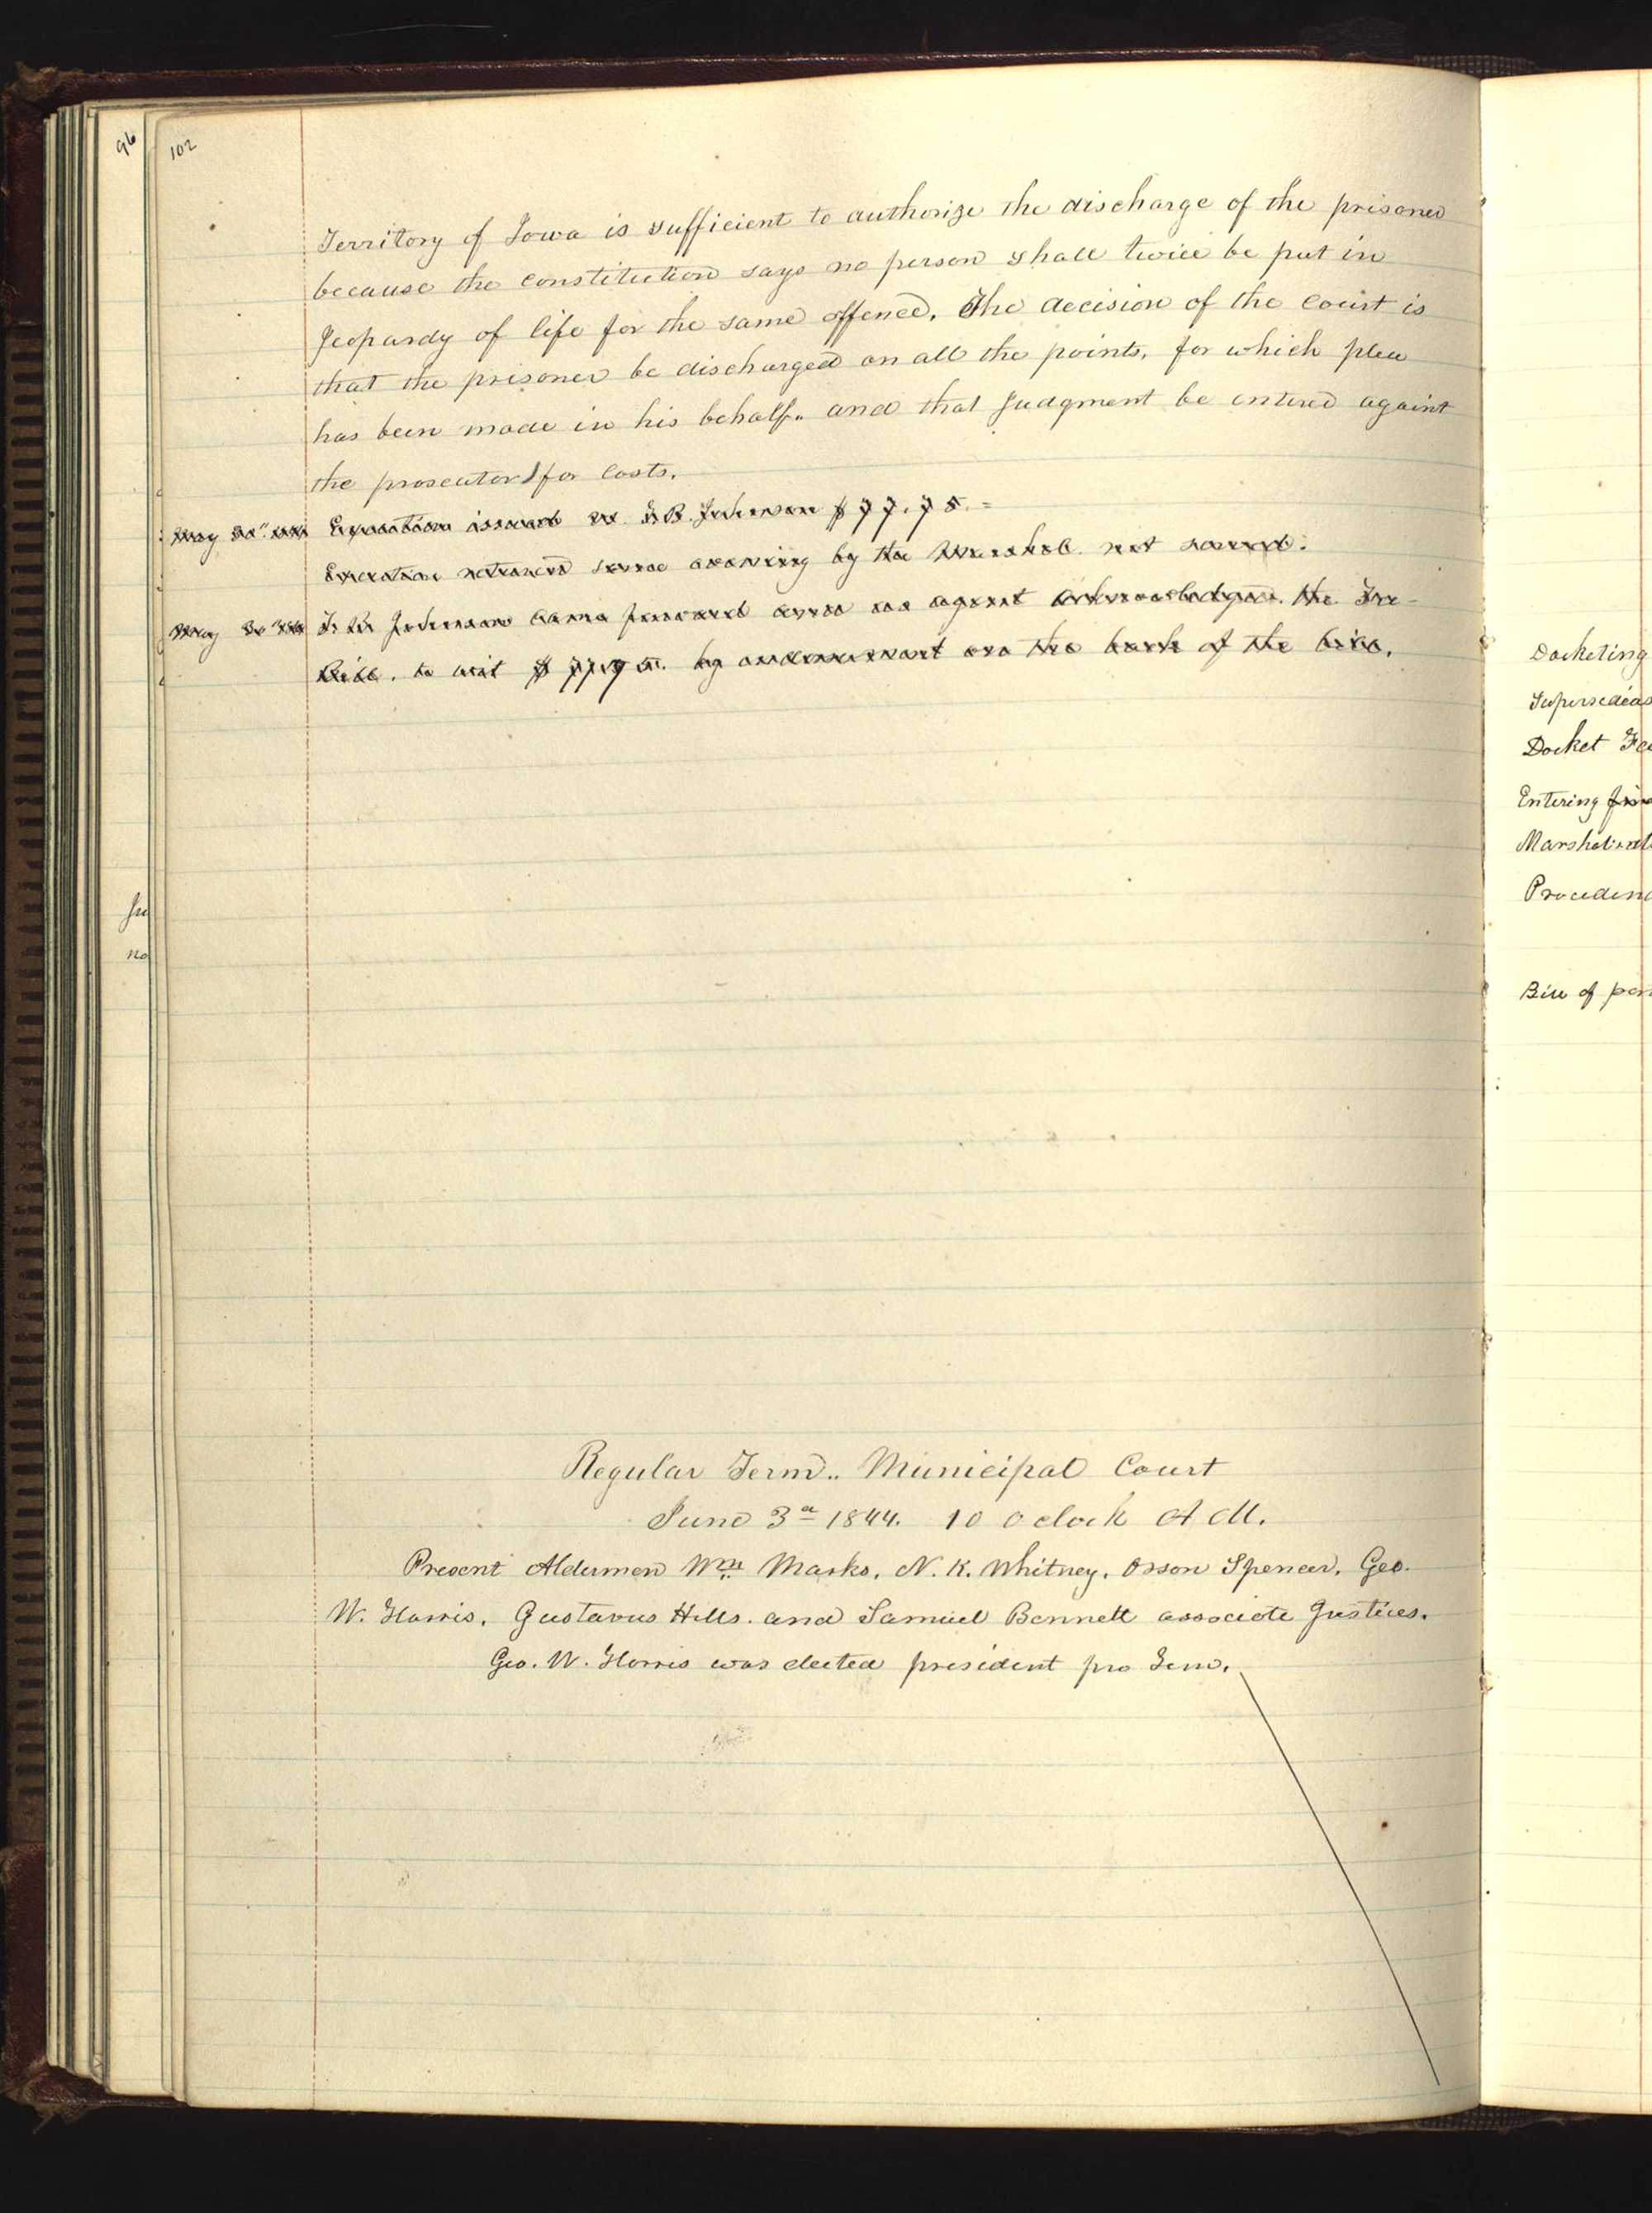 96
102
Territory of Iowa is sufficient to authorize the discharge of the prisoner
because the constitution says no person shall twice be put in
Jeopardy of life for the same offence. The decision of the court is
that the prisoner be discharged on all the points, for which plea
has been made in his behalf.. and that Judgment be entered againt
the prosecutor for costs.
May Execution issued J. B. Johnson $77.75. =
Execution returned same evening by the Marshal. not served.
May Johnson came forward and as agent acknowledged. the Fee-
Bill. to wit $77.75. by endorsement on the back of the bill.
no
Docketing
Supersedeas
Docket Fe
Entering
Marshal
Proceden
Bill of
Regular Term.. Municipal Court
June 3d 1844. 10 o clock A M.
Present Aldermen Wm Marks, N. K. Whitney, Orson Spencer, Geo.
W. Harris, Gustavus Hills. and Samuel Bennett associate Justices.
Geo. W. Harris was elected president pro Tem.